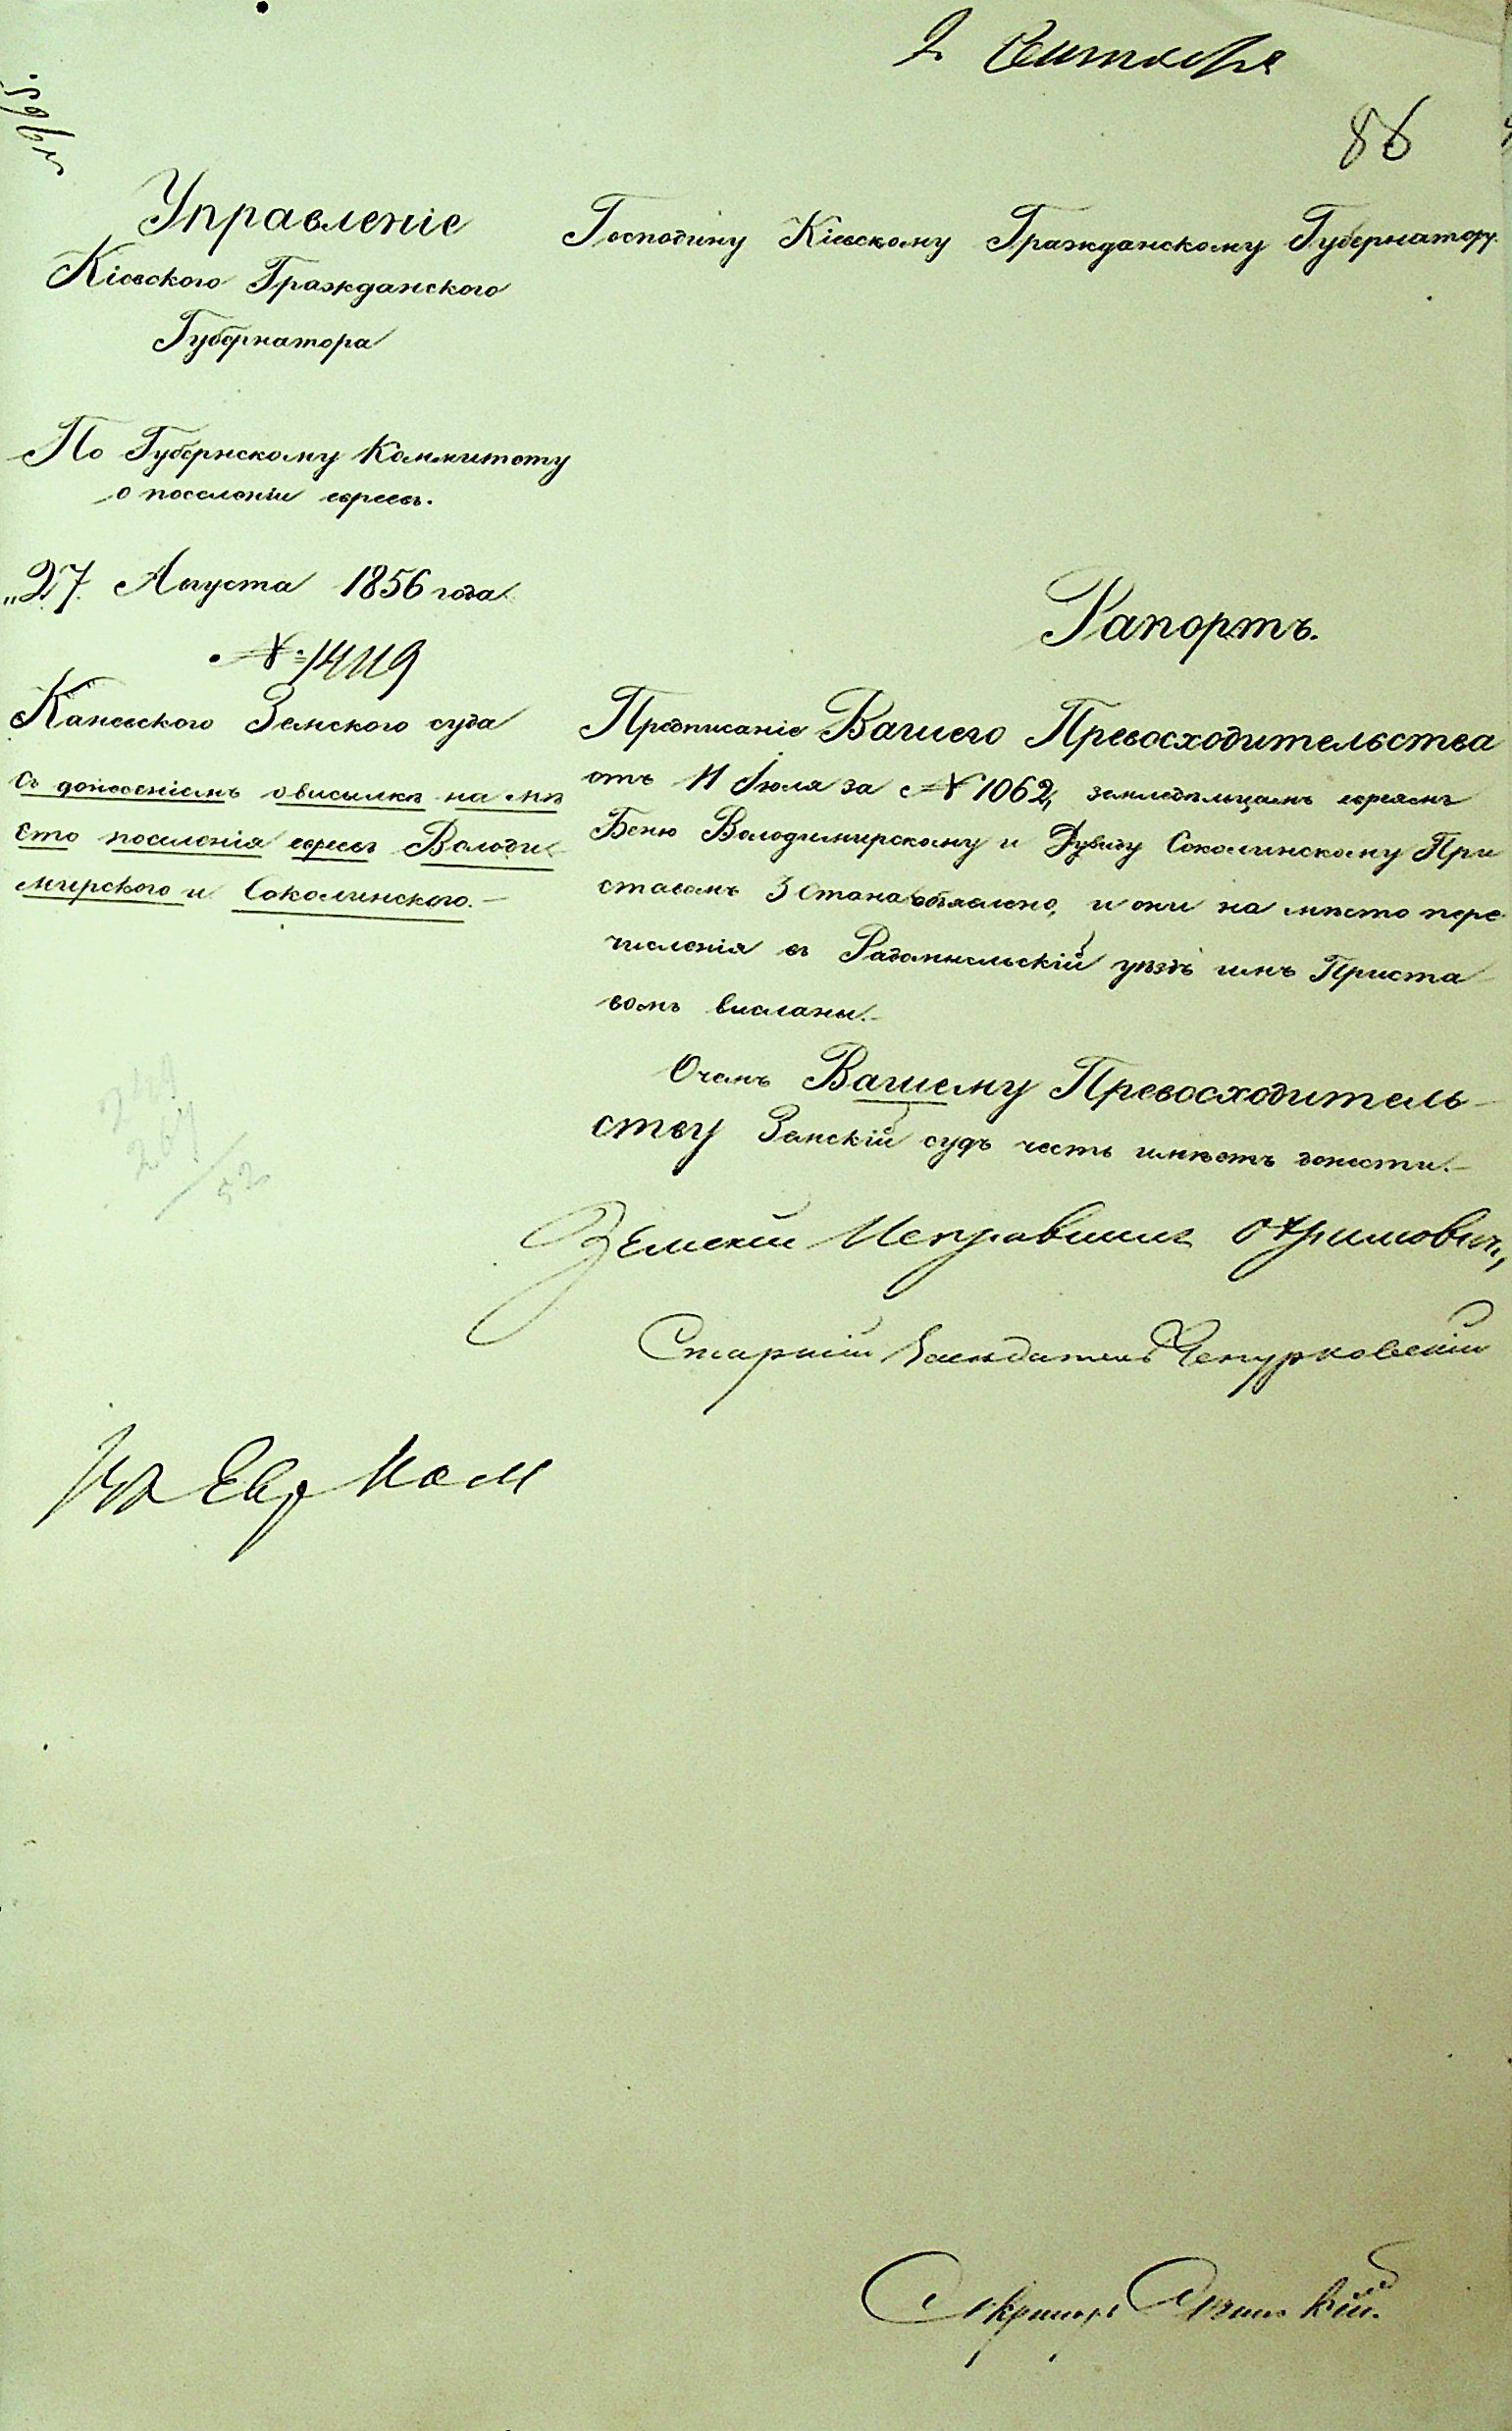 2 Сентября
86
Управленіе
Кіевского Гражданского
Губернатора
По Губернскому Коммитету
о поселеніи евреевъ.
„27 Августа 1856 года
№ 14119
Каневского Земского суда
съ донесеніемъ о висылке на мѣ
сто поселенія евреевъ Володи
мирского и Соколинского.—
Господину Кіевскому Гражданскому Губернатору.
Рапортъ.
Предписаніе Вашего Превосходительства
отъ 11 Іюля за № 1062, земледѣльцамъ евреямъ
Беню Володимирскому и Дувиду Соколинскому При
ставомъ 3 Стана объявлено, и они на мѣсто пере
численія въ Радомысльскій уѣздъ имъ Приста
вомъ висланы.—
О чемъ Вашему Превосходитель-
ству Земскій судъ честь имѣетъ донести.—
Земскій Исправникъ
Старшій Засѣдатель Чепурковскій
Евр Ком
Секретарь